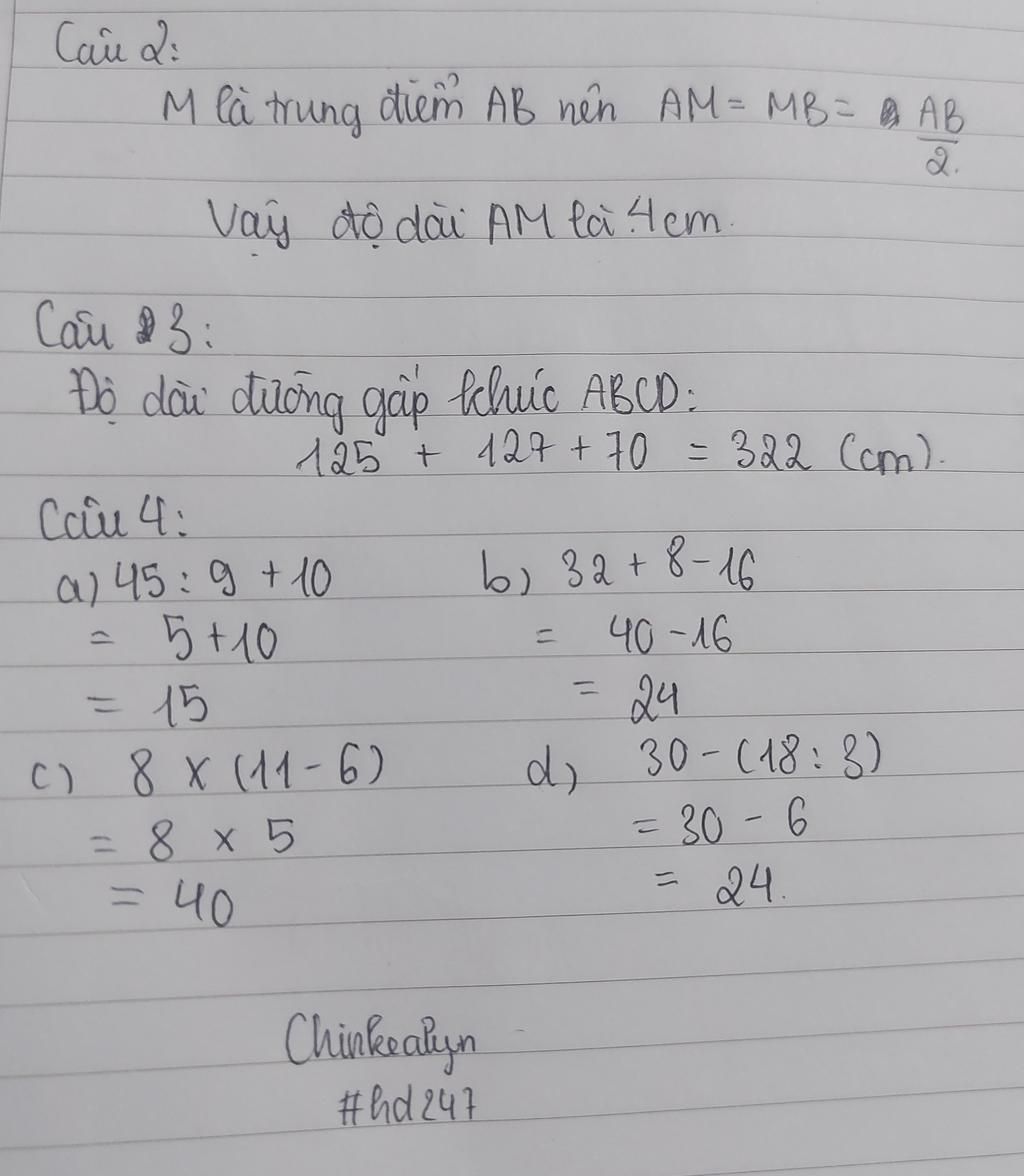 Câu 2:
M là trung điểm AB nên AM = MB = AB/2.
Vậy độ dài AM là: 4cm.
Câu 3:
Độ dài đường gấp khúc ABCD:
125 + 127 + 70 = 322 (cm).
Câu 4:
a) 45 : 9 + 10 b) 32 + 8 - 16
= 5 + 10 = 40 - 16
= 15 = 24
c) 8 x (11 - 6) d) 30 - (18 : 3)
= 8 x 5 = 30 - 6
= 40 = 24.
Chinkealyn
#hd247